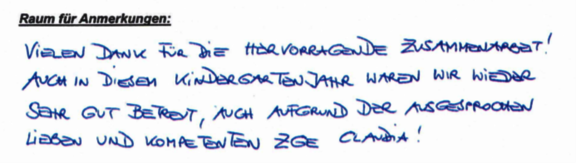 Raum für Anmerkungen:
VIELEN DANK FÜR DIE HERVORRAGENDE ZUSAMMENARBEIT!
AUCH IN DIESEM KINDERGARTENJAHR WAREN WIR WIEDER
SEHR GUT BETREUT, AUCH AUFGRUND DER AUSGESPROCHEN
LIEBEN UND KOMPETENTEN ZGE CLAUDIA!